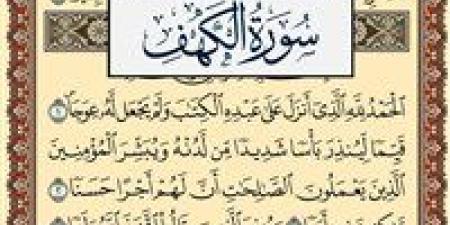 سُورَةُ الْكَهْفِ
الْحَمْدُ لِلَّهِ الَّذِي أَنزَلَ عَلَىٰ عَبْدِهِ الْكِتَابَ وَلَمْ يَجْعَل لَّهُ عِوَجًا ۜ ١
قَيِّمًا لِّيُنذِرَ بَأْسًا شَدِيدًا مِّن لَّدُنْهُ وَيُبَشِّرَ الْمُؤْمِنِينَ
الَّذِينَ يَعْمَلُونَ الصَّالِحَاتِ أَنَّ لَهُمْ أَجْرًا حَسَنًا ٢